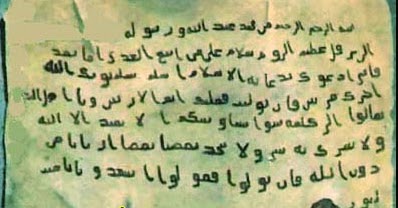 بسم الله الرحمن الرحيم من محمد عبد الله ورسوله
الى هرقل عظيم الروم سلام على من اتبع الهدى اما بعد
فانى ادعوك بدعاية الاسلام اسلم تسلم يوتك الله
اجرك مرتين فان توليت فعليك اثم ويا اهل
تعالوا الى كلمة سوا بيننا وبينكم الا نعبد الا الله
ولا نشرك به ولا يتخذ بعضنا بعضا اربابا من
دون الله فان تولوا فقولوا اشهدوا بانا